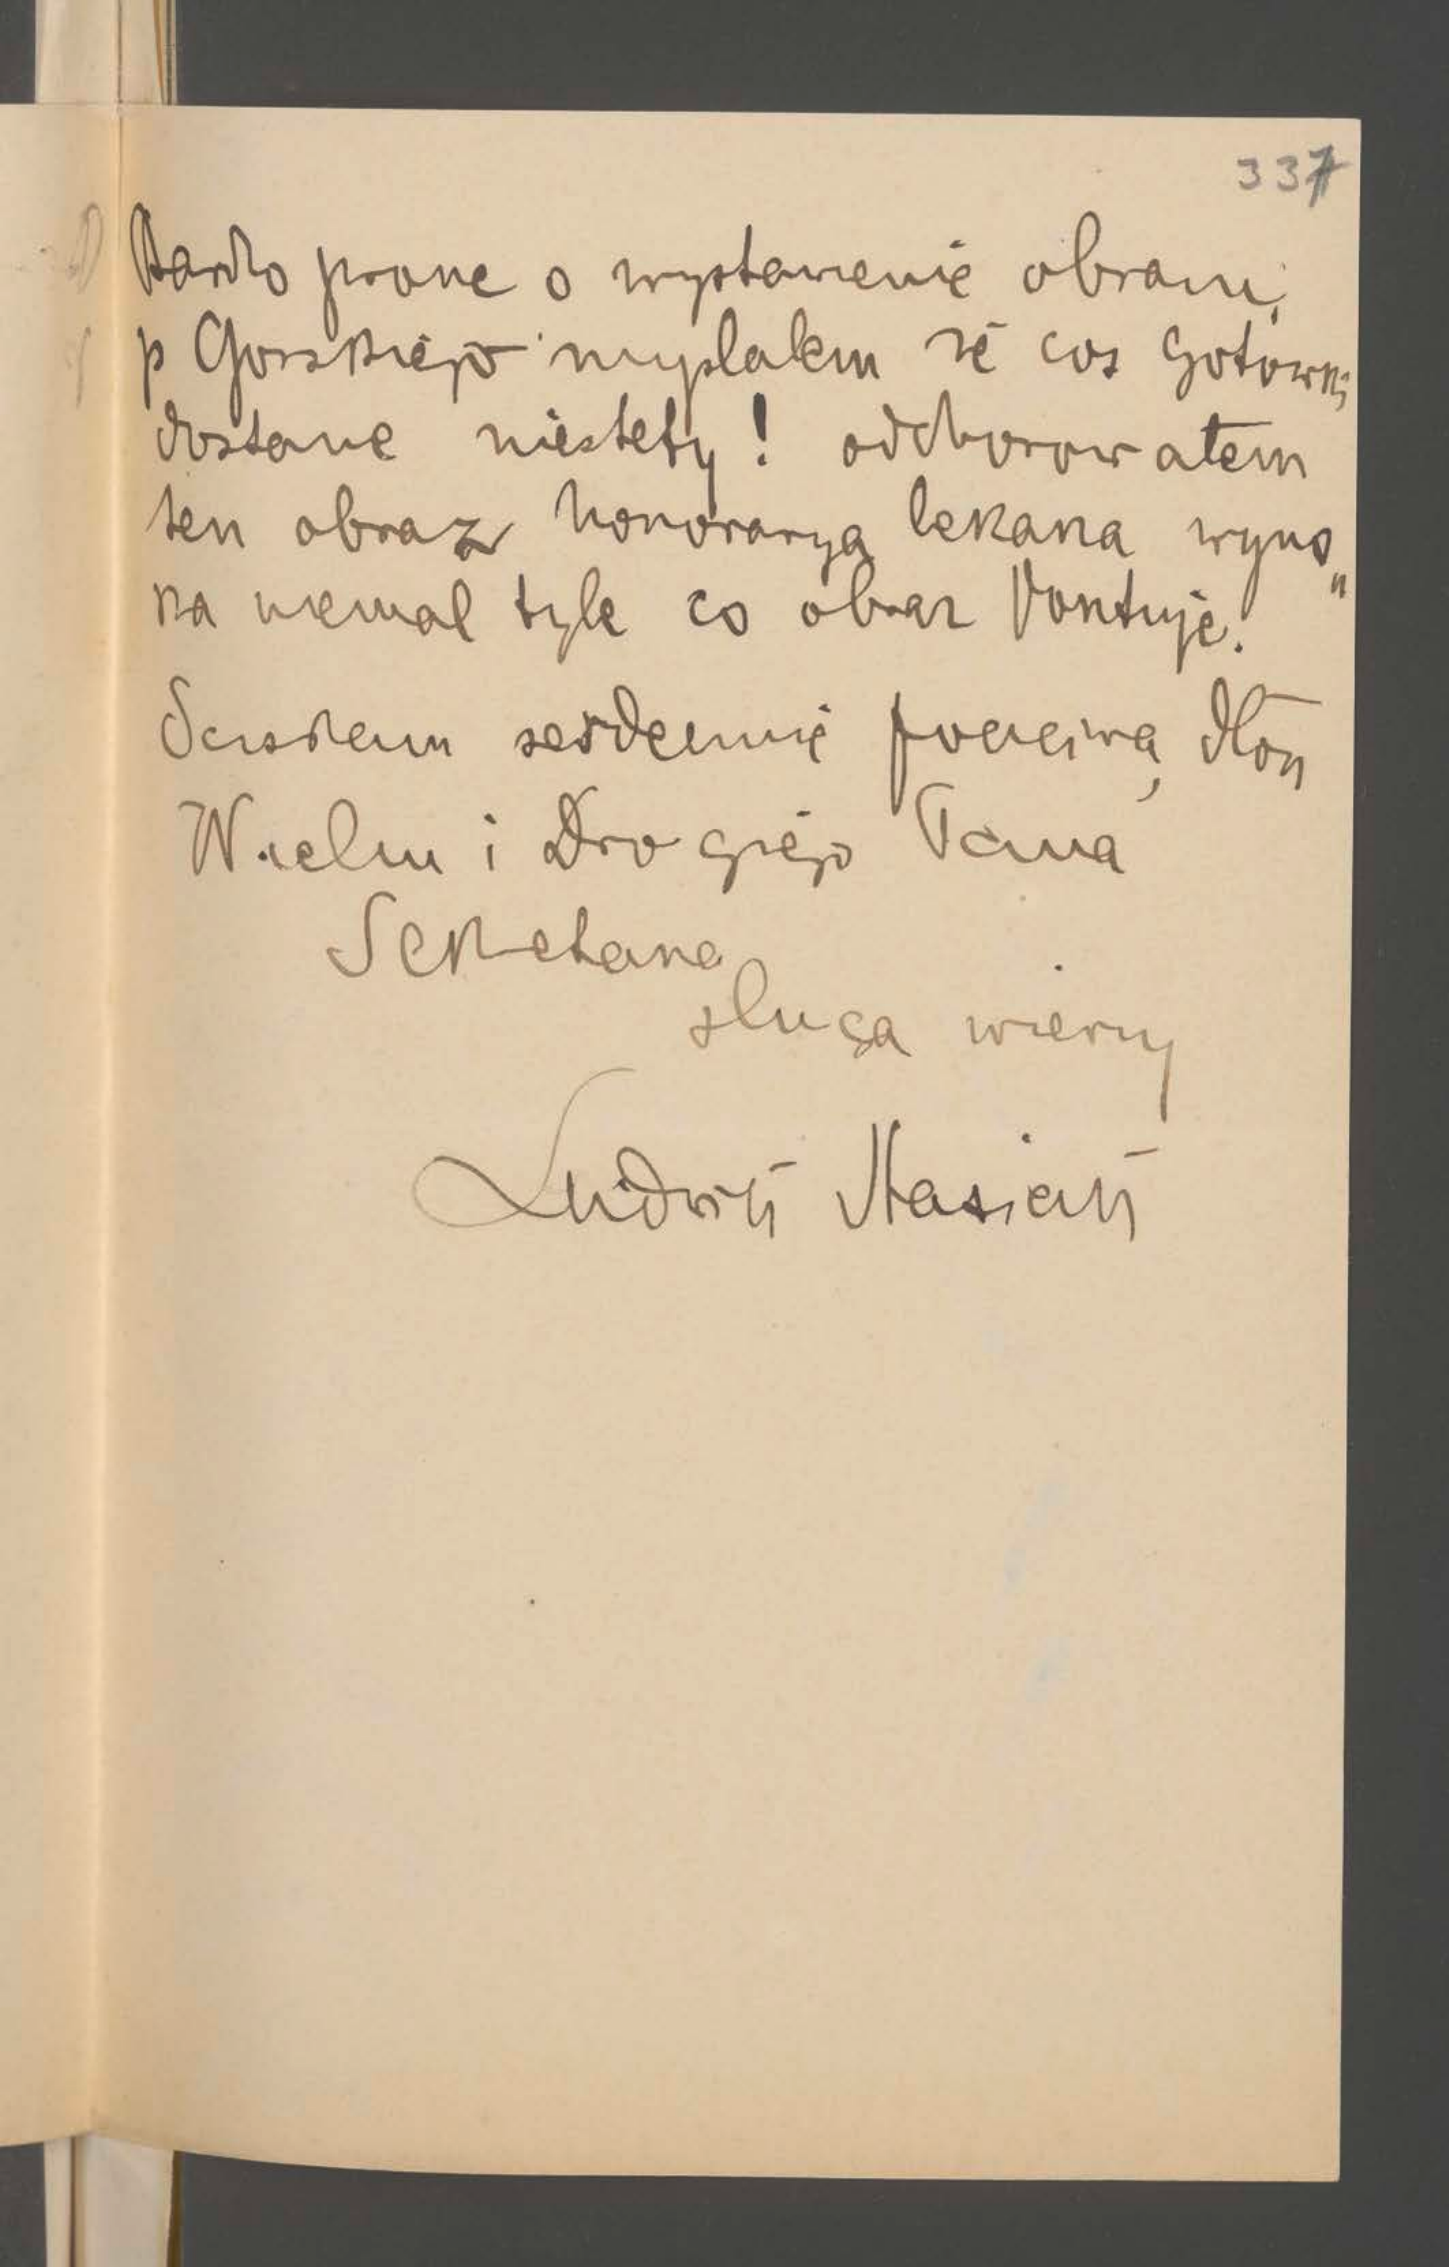 337
Bardzo proszę o wystawienie obrazu
p Gorskiego myslałem że cos gotowki
dostane niestety! odchorowałem
ten obraz honorarya lekarza wyno„
szą niemal tyle co obraz kosztuje.
Sciskam serdecznie poczciwą dłoń
Wielm i Drogiego Pana
Sekretarza
sługa wierny
Ludwik Stasiak